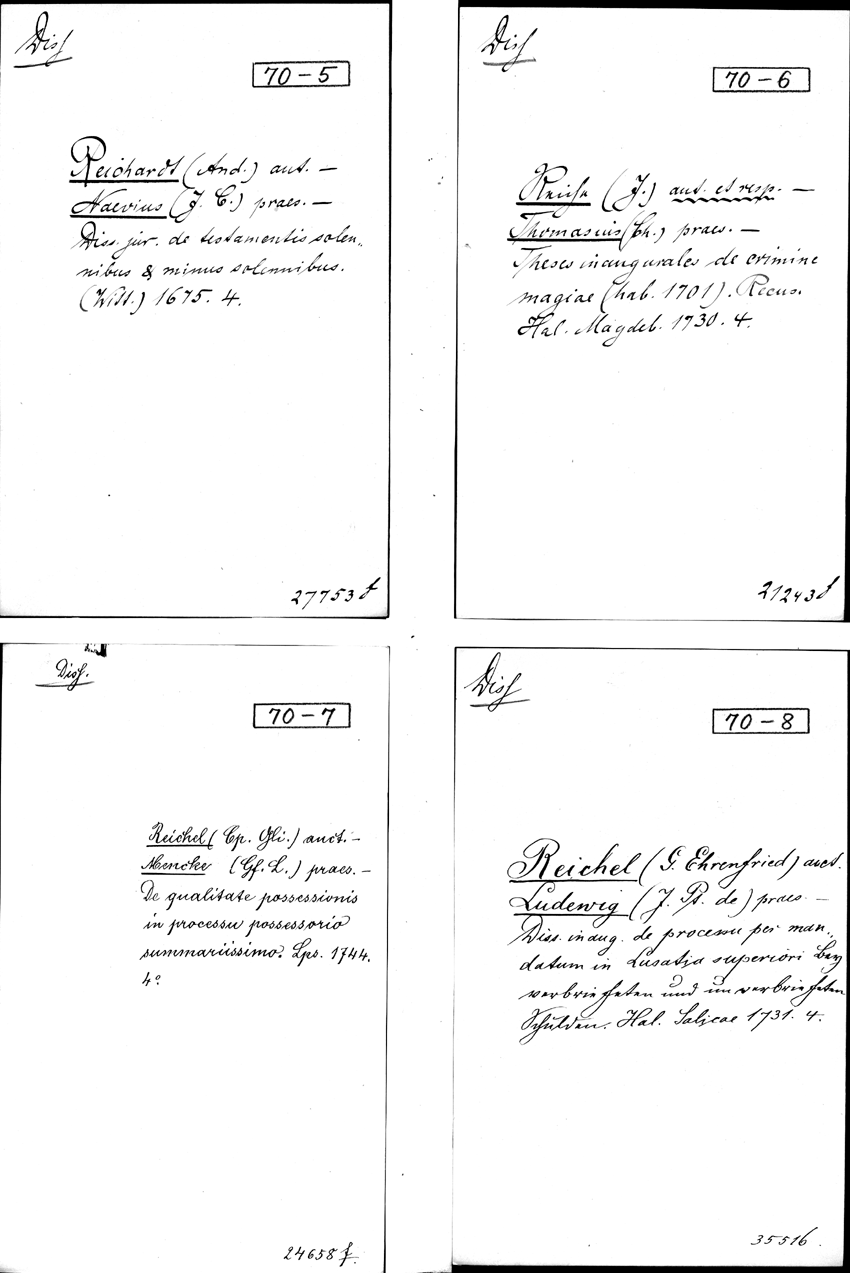 Diss
70-5
Reichardt (And.) aut. —
Naevius (J. C.) praes. —
Diss. jur. de testamentis solen-
nibus & minus solennibus.
(Witt.) 1675. 4.
27753 f
Diss
70-6
Reiche (J.) aut. et resp. —
Thomasius (Ch.) praes. —
Theses inaugurales de crimine
magiae (hab. 1701). Recus.
Hal. Magdeb. 1730. 4.
21243 f
Diss.
70-7
Reichel (Cp. Gli.) auct. —
Mencke (Gf. L.) praes. —
De qualitate possessionis
in processu possessorio
summariissimo. Lps. 1744.
4º
24658 f.
Diss
70-8
Reichel (G. Ehrenfried) auct.
Ludewig (J. Pt. de) praes. —
Diss. inaug. de processu per man-
datum in Lusatia superiori bey
verbrieften und unverbrieften
Schulden. Hal. Salicae 1731. 4.
35516.